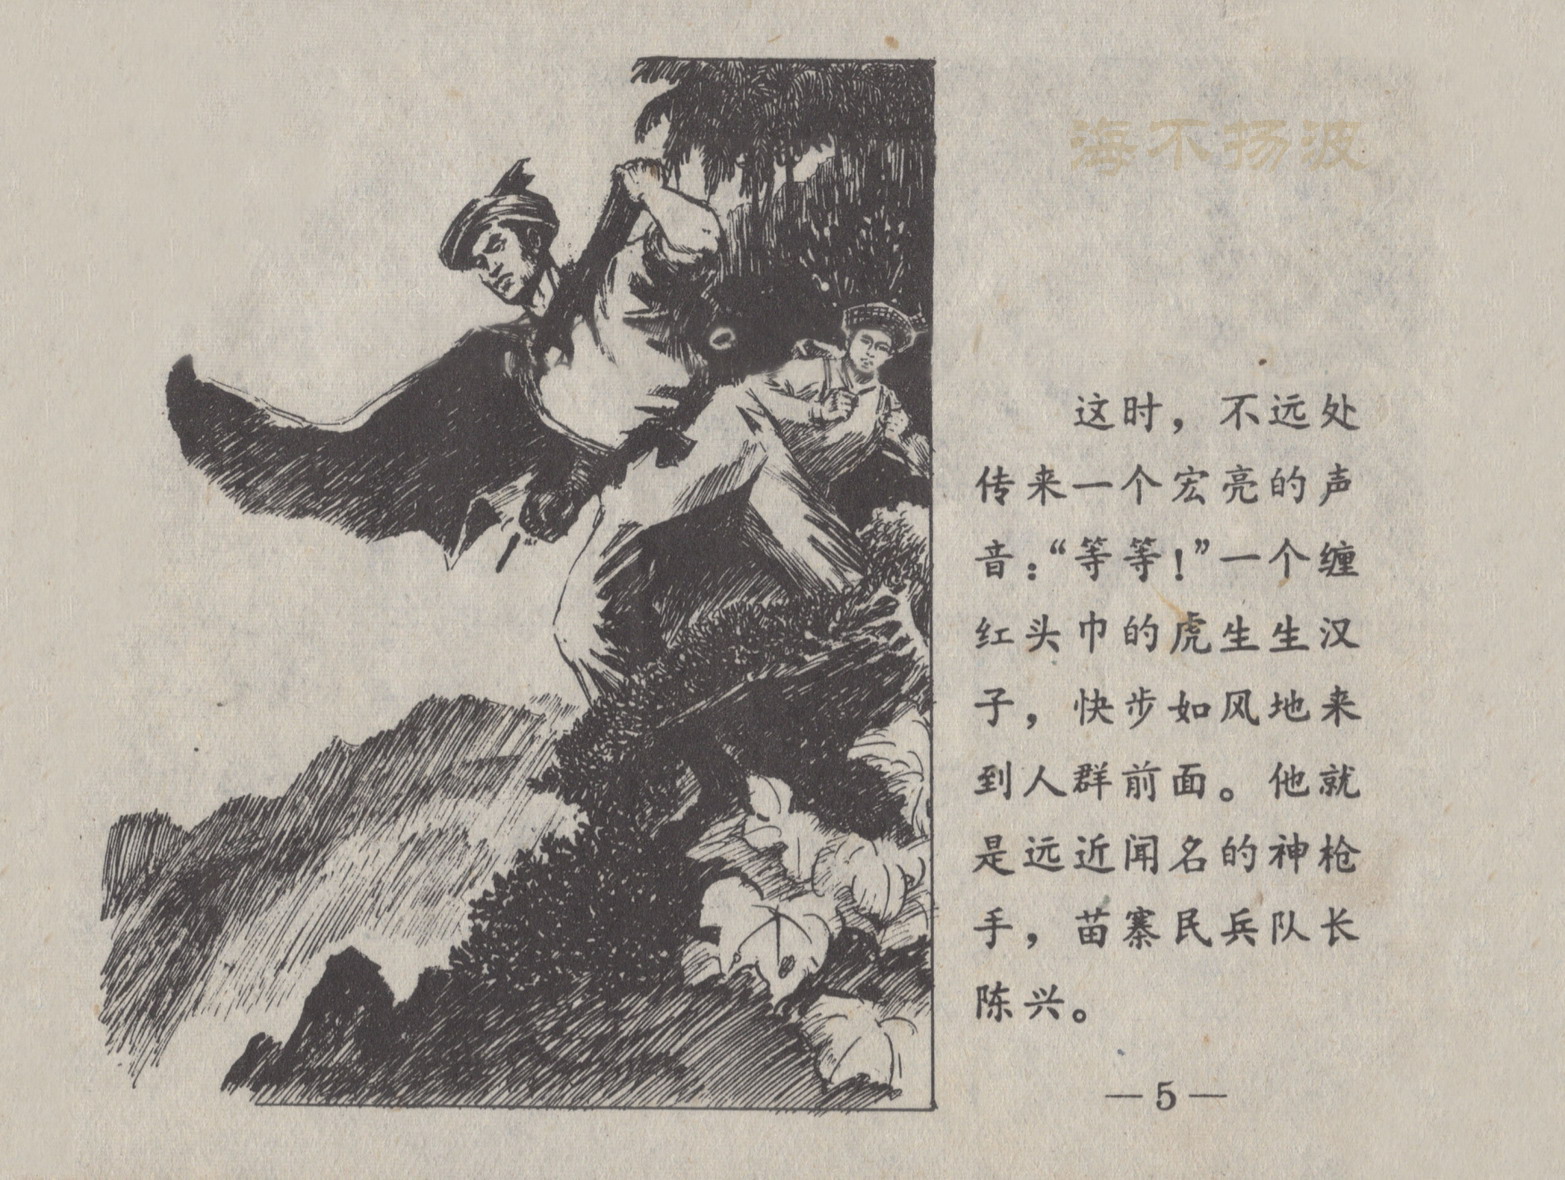 海不扬波
这时，不远处
传来一个宏亮的声
音：“等等！”一个缠
红头巾的虎生生汉
子，快步如风地来
到人群前面。他就
是远近闻名的神枪
手，苗寨民兵队长
陈兴。
—5—